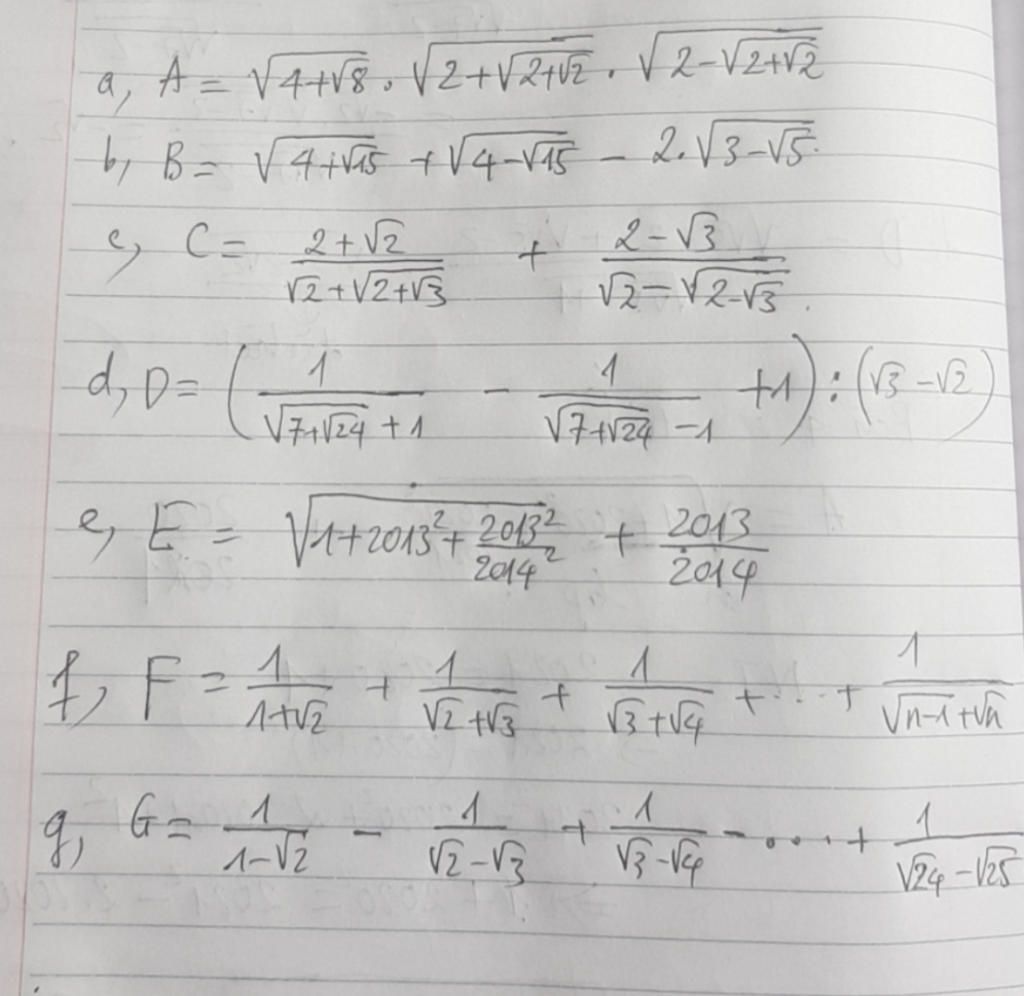 a, A = √(4+√8) . √(2+√(2+√2)) . √(2-√(2+√2))
b, B = √(4+√15) + √(4-√15) - 2.√(3-√5).
c, C = (2+√2)/(√2+√(2+√3)) + (2-√3)/(√2-√(2-√3)).
d, D = (1/(√(7+√24)+1) - 1/(√(7+√24)-1) +1) : (√3-√2)
e, E = √(1+2013²+2013²/2014²) + 2013/2014
f, F = 1/(1+√2) + 1/(√2+√3) + 1/(√3+√4) + ... + 1/(√(n-1)+√n)
g, G = 1/(1-√2) - 1/(√2-√3) + 1/(√3-√4) - .... + 1/(√24-√25)